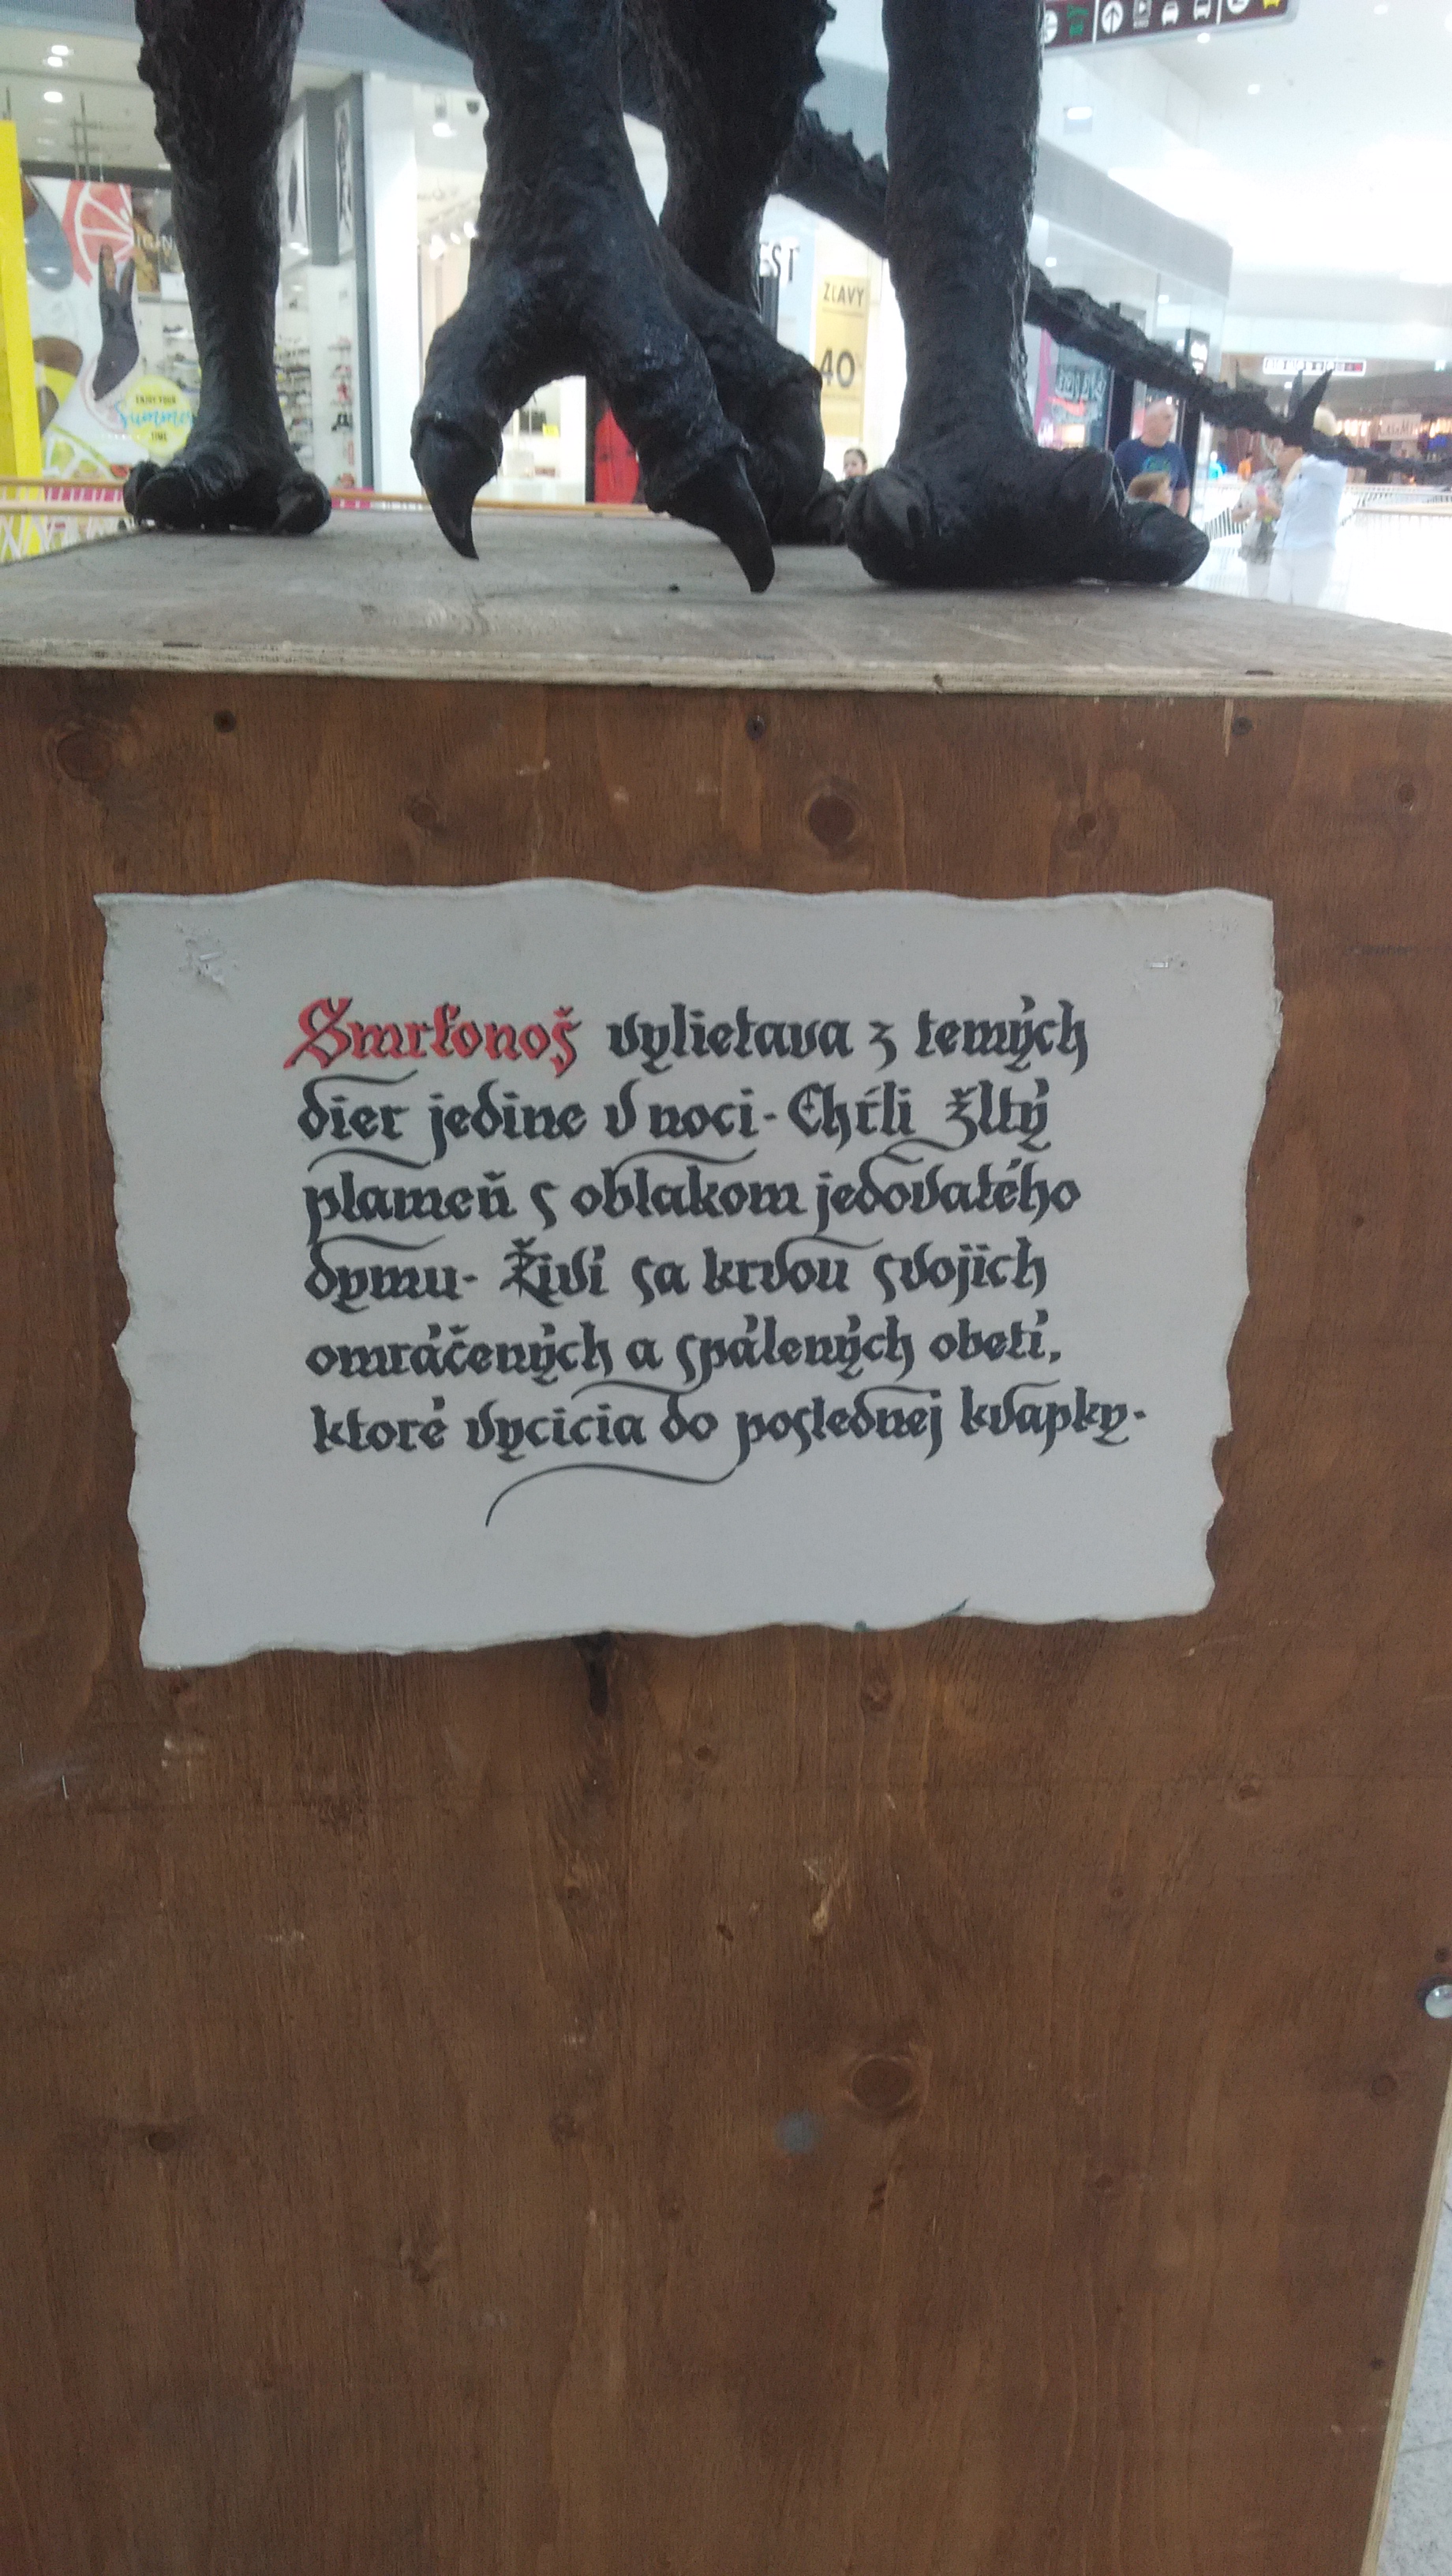 ZĽAVY
40
ENJOY YOUR
summer
TIME
Smrťonoš vylietava z temých
dier jedine v noci. Chŕli žltý
plameň s oblakom jedovatého
dymu. Živí sa krvou svojich
omráčených a spálených obetí,
ktoré vycicia do poslednej kvapky.